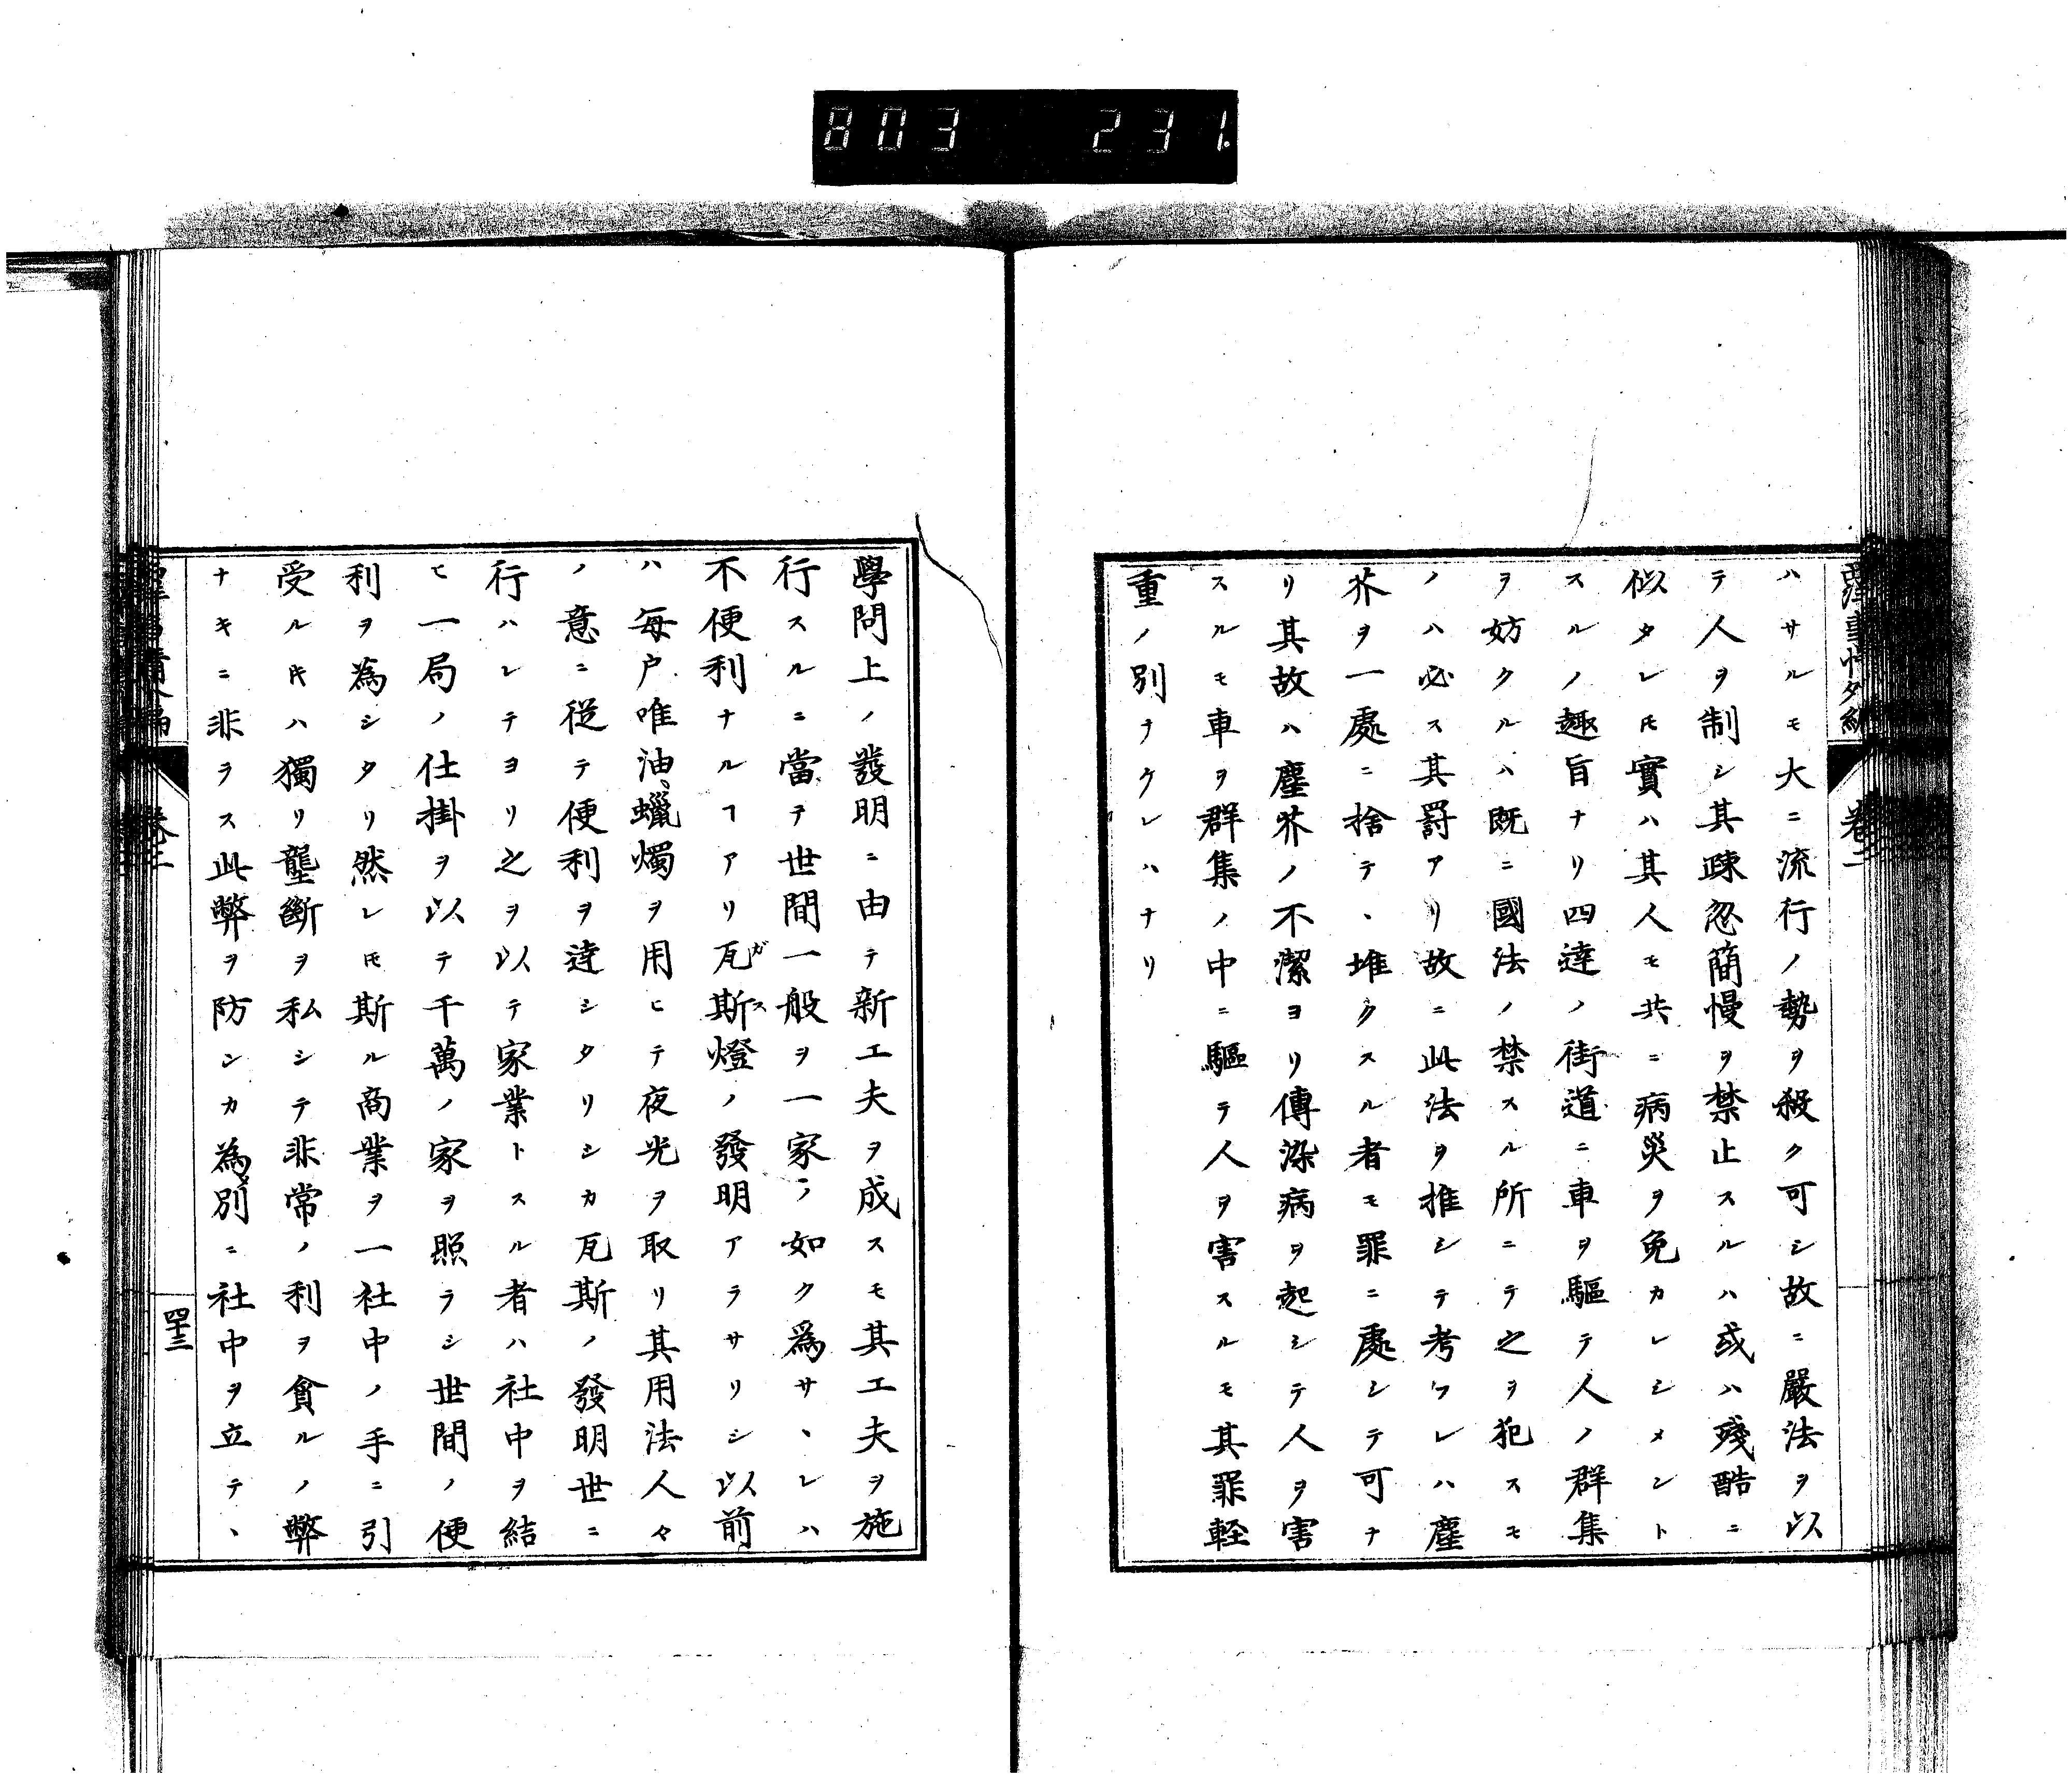 803 231.
西洋事情外編 卷二
ハサルモ大ニ流行ノ勢ヲ殺ク可シ故ニ嚴法ヲ以
テ人ヲ制シ其疎忽簡慢ヲ禁止スルハ或ハ殘酷ニ
似タレ𪜈實ハ其人モ共ニ病災ヲ免カレシメント
スルノ趣旨ナリ四達ノ街道ニ車ヲ驅テ人ノ群集
ヲ妨クルハ既ニ國法ノ禁スル所ニテ之ヲ犯スモ
ノハ必ス其罸アリ故ニ此法ヲ推シテ考フレハ塵
芥ヲ一處ニ捨テヽ堆クスル者モ罪ニ處シテ可ナ
リ其故ハ塵芥ノ不潔ヨリ傳染病ヲ起シテ人ヲ害
スルモ車ヲ群集ノ中ニ驅テ人ヲ害スルモ其罪輕
重ノ別ナクレハナリ
學問上ノ發明ニ由テ新工夫ヲ成スモ其工夫ヲ施
行スルニ當テ世間一般ヲ一家ノ如ク爲サヽレハ
不便利ナルヿアリ瓦斯燈ノ發明アラサリシ以前
ハ毎戸唯油、蠟燭ヲ用ヒテ夜光ヲ取リ其用法人々
ノ意ニ從テ便利ヲ達シタリシカ瓦斯ノ發明世ニ
行ハレテヨリ之ヲ以テ家業トスル者ハ社中ヲ結
ヒ一局ノ仕掛ヲ以テ千萬ノ家ヲ照ラシ世間ノ便
利ヲ為シタリ然レ𪜈斯ル商業ヲ一社中ノ手ニ引
受ルキハ獨リ壟斷ヲ私シテ非常ノ利ヲ貪ルノ弊
ナキニ非ラス此弊ヲ防ンカ為メ別ニ社中ヲ立テヽ
卷二
四十三